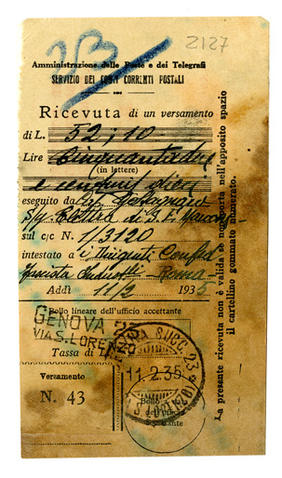 2127
Amministrazione delle Poste e dei Telegrafi
SERVIZIO DEI CONTI CORRENTI POSTALI
Ricevuta di un versamento
di L. 52,10
Lire Cinquantadue
(in lettere)
e centesimi dieci
eseguito da
S/y. Elettra di G.
sul c/c N. 1/3120
intestato a Dirigenti Confed
Fascista - Roma -
Addì 11/2 1935
Bollo lineare dell'ufficio accettante
GENOVA 23
VIA S. LORENZO
Tassa di L.
GENOVA SUCC. 23
11.2.35
Versamento
N. 43
Bollo
dell'ufficio
accettante
La presente ricevuta non è valida se non porta nell'apposito spazio
il cartellino gommato numerato.